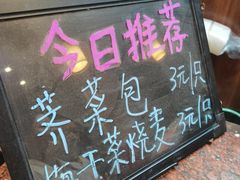 今日推荐
荠菜包 3元/只
梅干菜烧麦 3元/只